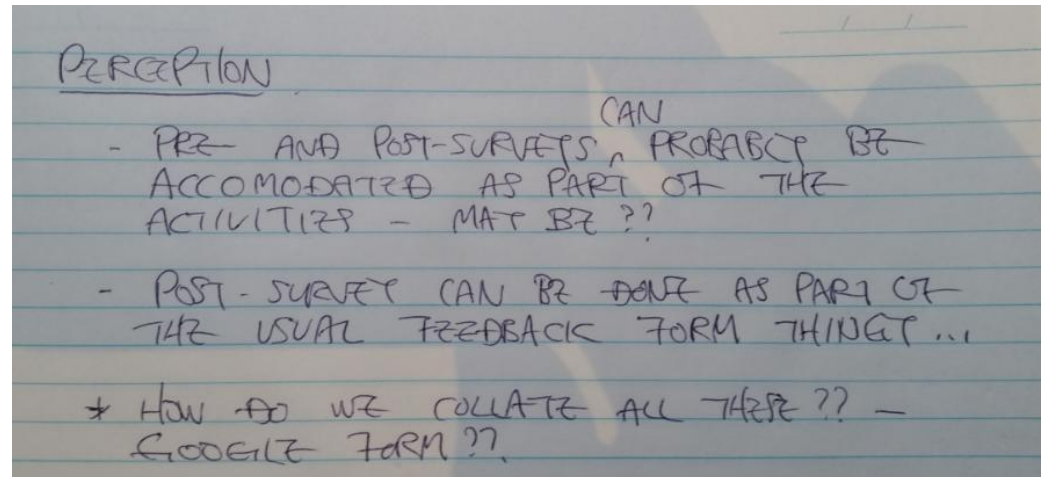 PERCEPTION
CAN
- PRE AND POST-SURVEYS ^ PROBABLY BE
ACCOMODATED AS PART OF THE
ACTIVITIES - MAY BE ??
- POST-SURVEY CAN BE DONE AS PART OF
THE USUAL FEEDBACK FORM THINGY ...
* HOW DO WE COLLATE ALL THESE ?? -
GOOGLE FORM ??